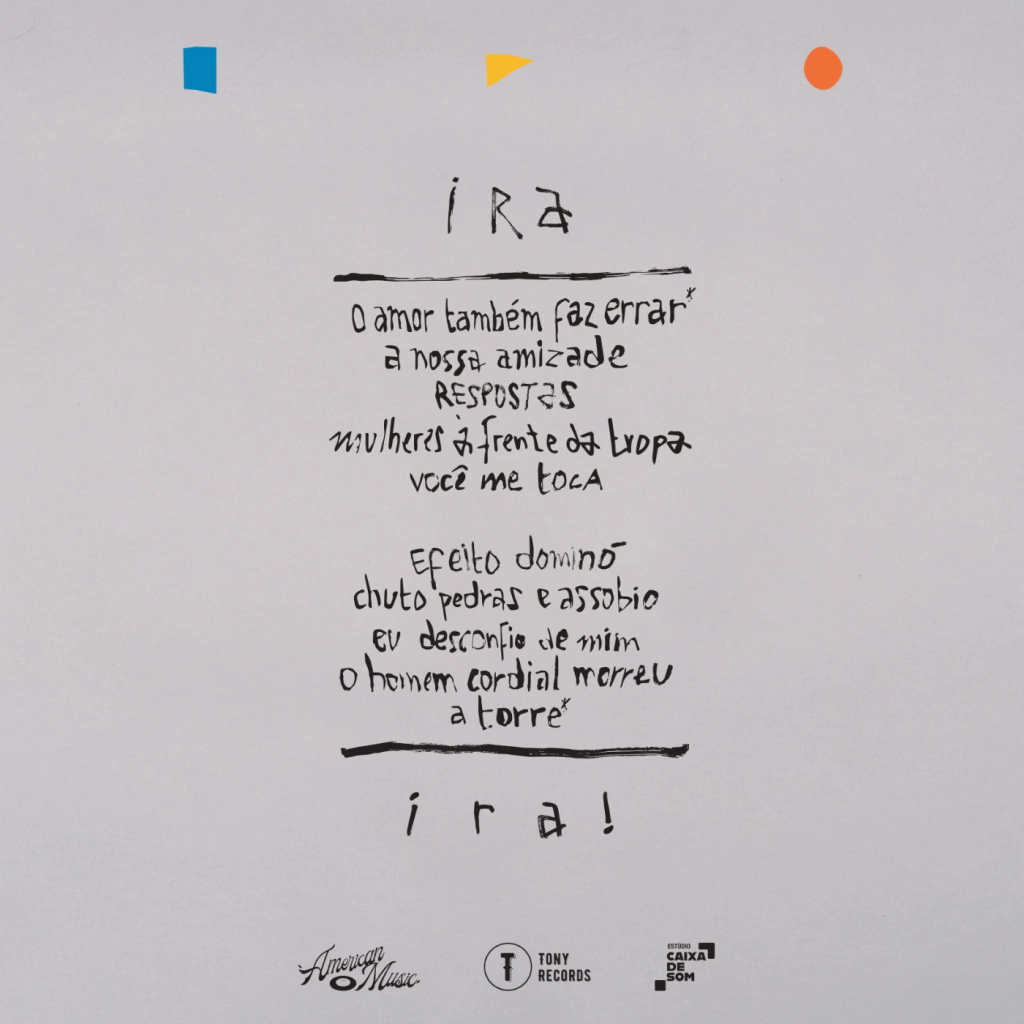 iRa
O amor também faz errar*
a nossa amizade
RESPOSTAS
mulheres à frente da tropa
você me tocA
Efeito dominó
chuto pedras e assobio
eu desconfio de mim
O homem cordial morreu
a torre*
ira!
American Music
TONY
RECORDS
ESTÚDIO
CAIXA
DE
SOM